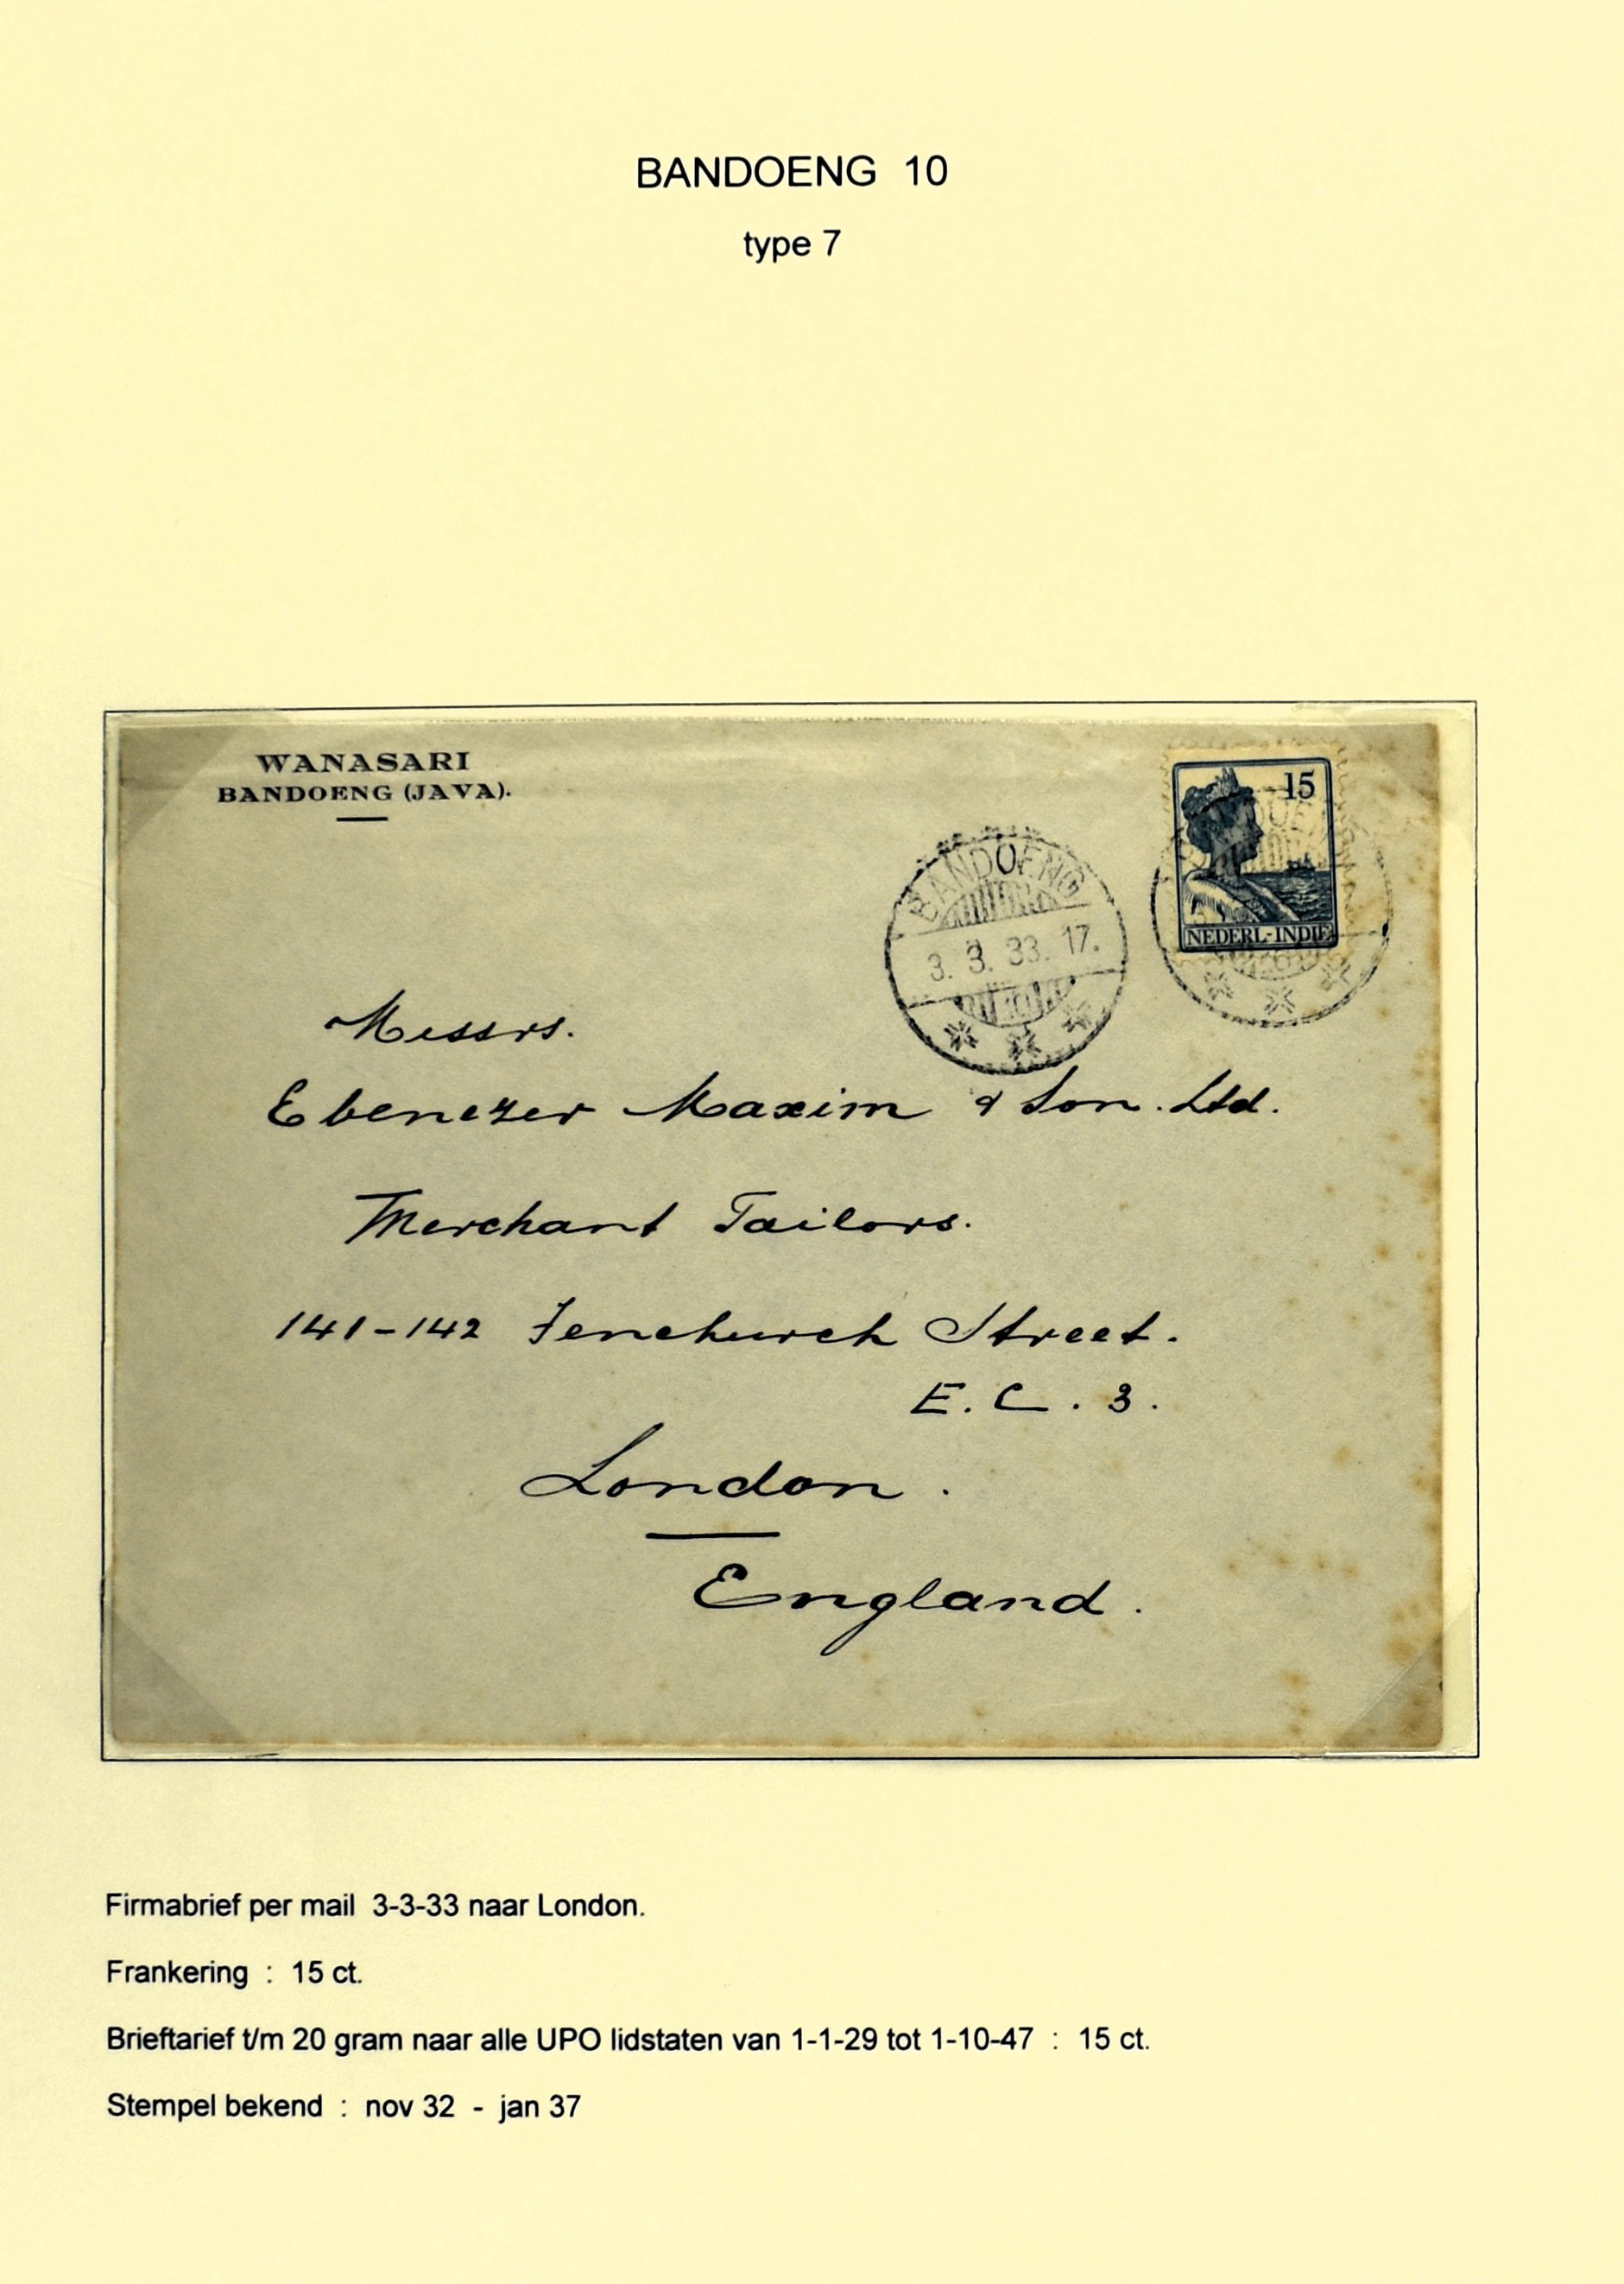 BANDOENG 10
type 7
WANASARI
BANDOENG (JAVA).
15
NEDERL-INDIE
BANDOENG
3. 3. 33. 17.
10
Messrs.
Ebenezer Maxim & Son. Ltd.
Merchant Tailors.
141-142 Fenchurch Street.
E. C. 3.
London.
England.
Firmabrief per mail 3-3-33 naar London.
Frankering : 15 ct.
Brieftarief t/m 20 gram naar alle UPO lidstaten van 1-1-29 tot 1-10-47 : 15 ct.
Stempel bekend : nov 32 - jan 37